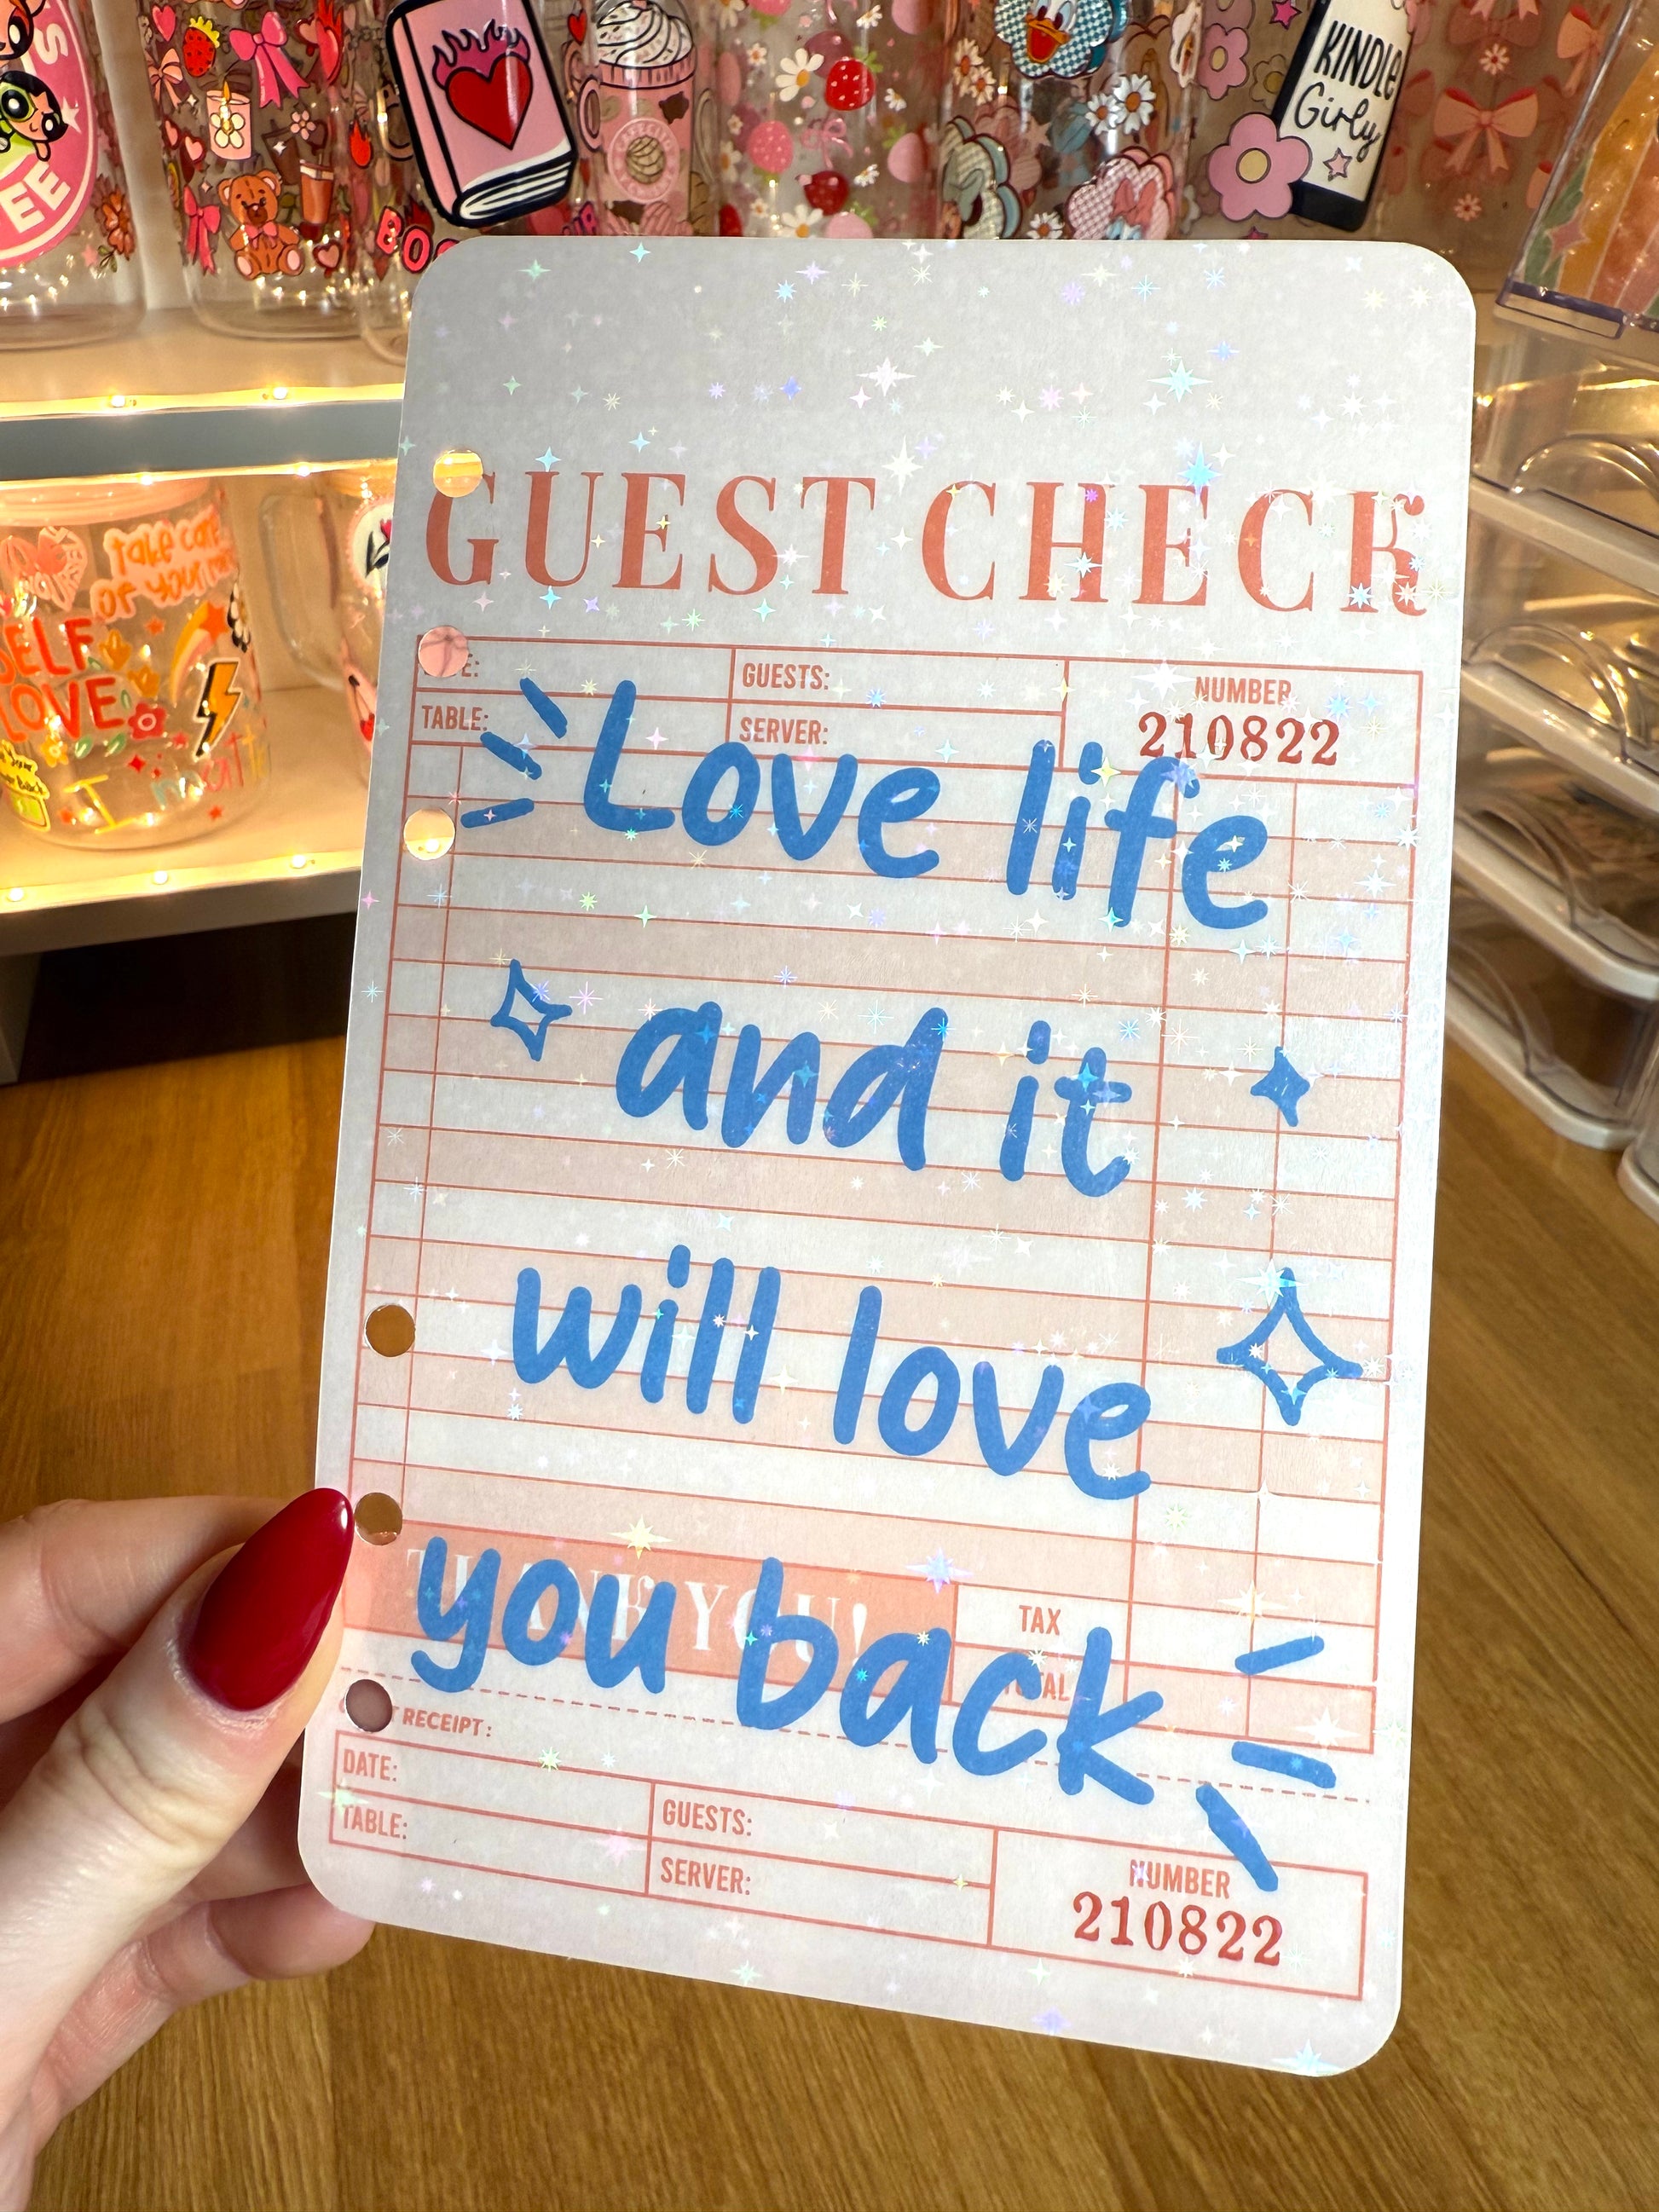 EE
BOO
KINDLE
Girly
take care
of your
SELF
LOVE
GUEST CHECK
GUESTS:
NUMBER
TABLE:
SERVER:
210822
Love life
and it
will love
you back
THANK YOU!
TAX
TOTAL
RECEIPT:
DATE:
GUESTS:
NUMBER
TABLE:
SERVER:
210822